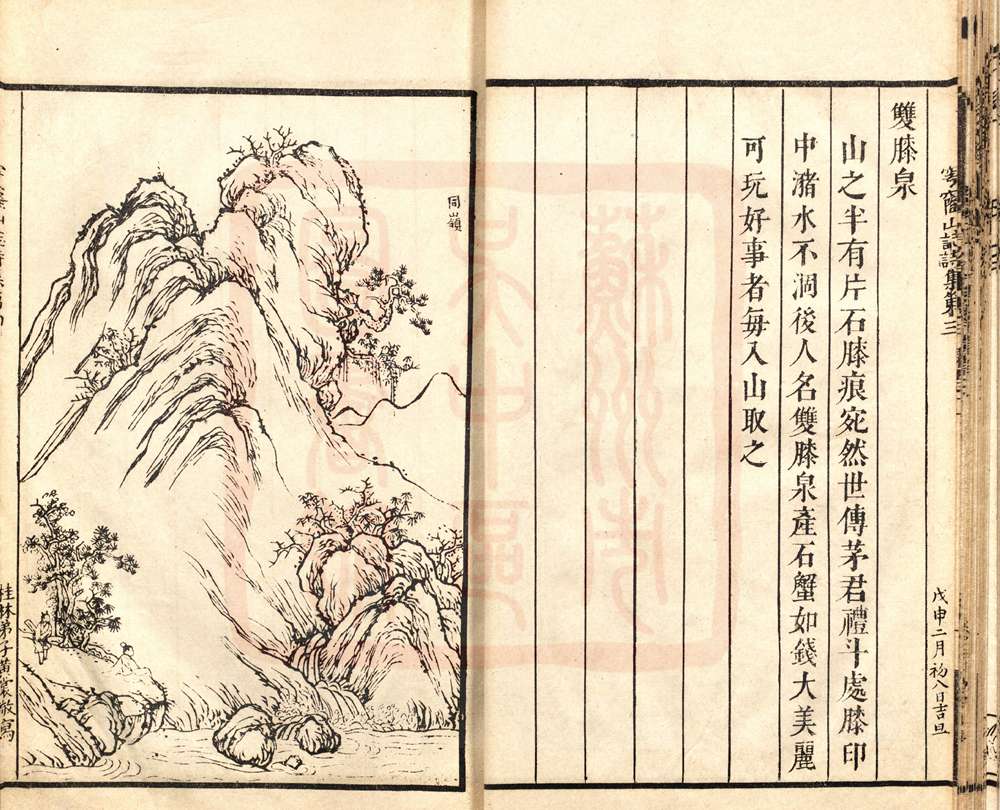 雙膝泉
山之半有片石膝痕宛然世傳茅君禮斗處膝印
中瀦水不涸後人名雙膝泉產石蟹如錢大美麗
可玩好事者每入山取之
戊申二月初八日吉旦
同嶺
桂林弟子黃裳敬寫